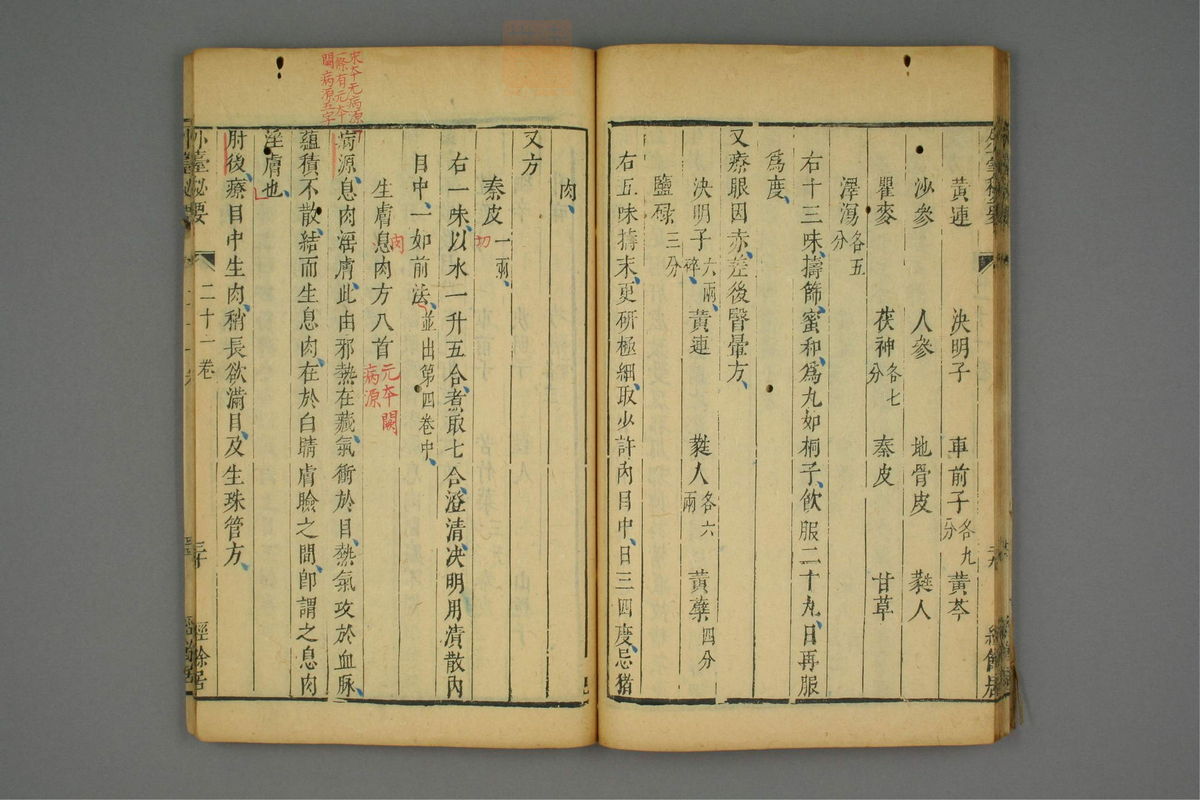 黃連 決明子 車前子各九分 黃芩
沙參 人參 地骨皮 蕤人
瞿麥 茯神各七分 秦皮 甘草
澤瀉各五分
右十三味擣篩蜜和爲丸如桐子飲服二十丸日再服
爲度
又療眼因赤差後瞖暈方
決明子六兩碎 黃連 蕤人各六兩 黃蘗四分
鹽碌三分
右五味擣末更研極細取少許內目中日三四度忌豬
肉
又方
秦皮一兩 切
右一味以水一升五合煮取七合澄清决明用漬散內
目中一如前法並出第四卷中
生膚息肉方八首 肉
元本闕
病源
宋本无病源
一條有元本
闕病源五字
病源息肉滛膚此由邪熱在藏氣衝於目熱氣攻於血脉
蘊積不散結而生息肉在於白睛膚瞼之間卽謂之息肉
淫膚也
肘後療目中生肉稍長欲滿目及生珠管方
外臺秘要 二十一卷 三十 經餘居